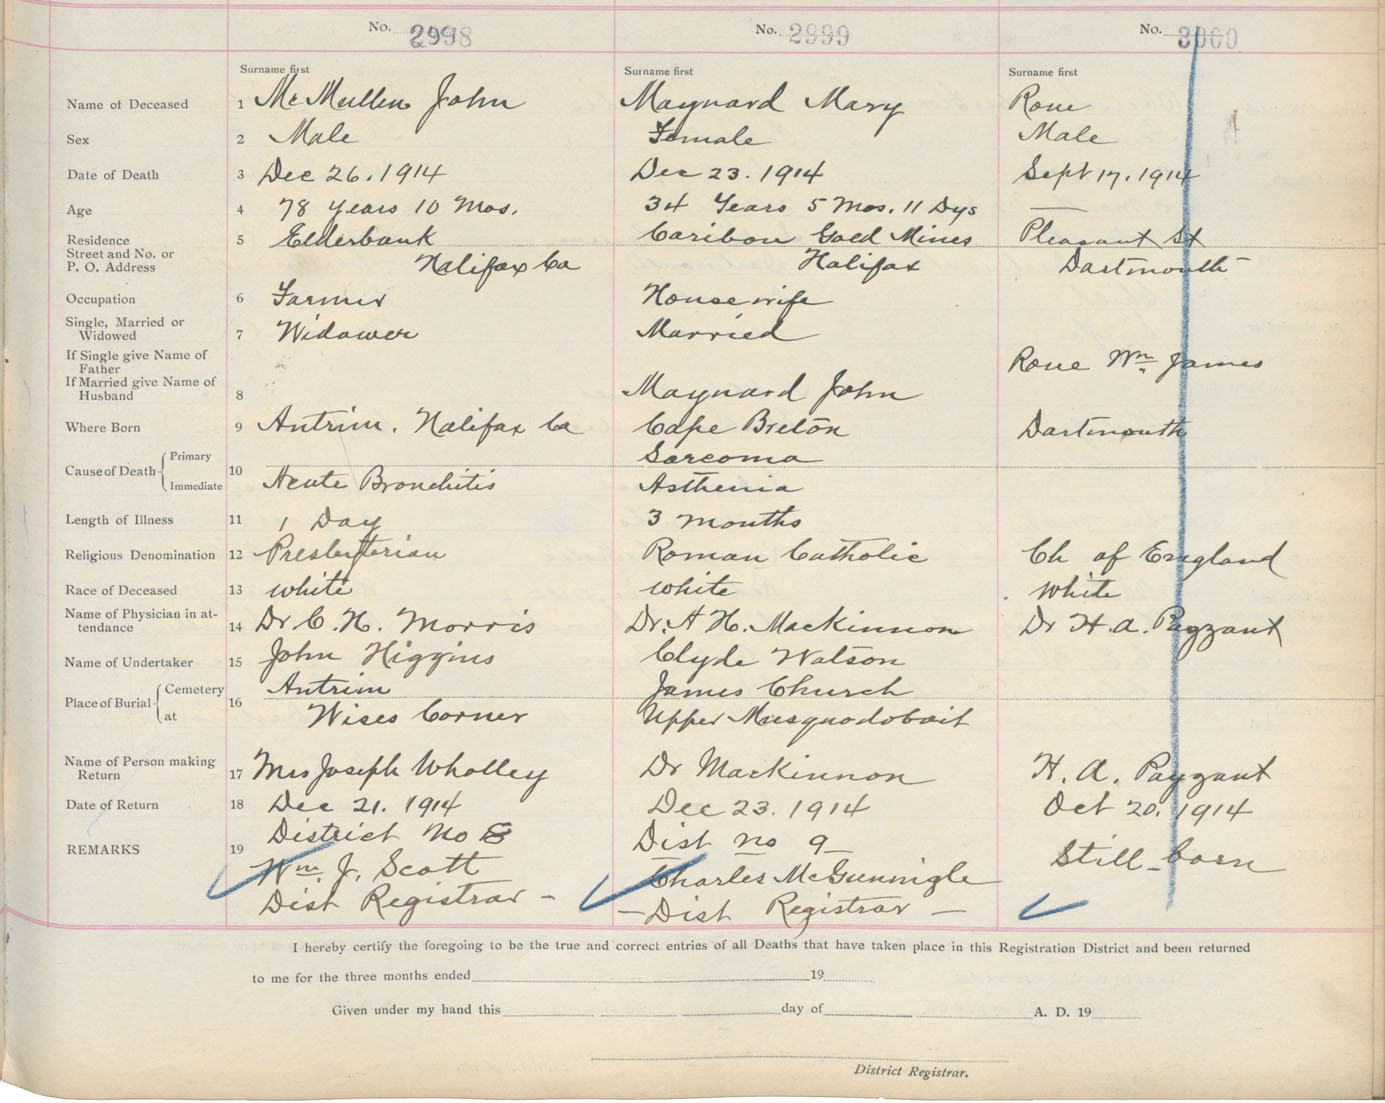 No. 2998
No. 2999
No. 3000
Surname first
Surname first
Surname first
Name of Deceased 1 McMullen John Maynard Mary Rone
Sex 2 Male Female Male
Date of Death 3 Dec 26. 1914 Dec 23. 1914 Sept 17, 1914
Age 4 78 Years 10 Mos. 34 Years 5 Mos. 11 Dys —
Residence 5 Elderbank Caribou Gold Mines Pleasant St
Street and No. or
P. O. Address Halifax Co Halifax Dartmouth
Occupation 6 Farmer Housewife
Single, Married or
Widowed 7 Widower Married
If Single give Name of
Father Rone Wm. James
If Married give Name of
Husband 8 Maynard John
Where Born 9 Antrim. Halifax Co Cape Breton Dartmouth
Cause of Death 10 Primary Sarcoma
Immediate Acute Bronchitis Asthenia
Length of Illness 11 1 Day 3 months
Religious Denomination 12 Presbyterian Roman Catholic Ch of England
Race of Deceased 13 white white white
Name of Physician in at-
tendance 14 Dr C. H. Morris Dr. A H. MacKinnon Dr H. A. Payzant
Name of Undertaker 15 John Higgins Clyde Watson
Place of Burial 16 Cemetery Antrim James Church
at Wises Corner Upper Musquodoboit
Name of Person making
Return 17 Mrs Joseph Wholley Dr MacKinnon H. A. Payzant
Date of Return 18 Dec 21. 1914 Dec 23. 1914 Oct 20, 1914
REMARKS 19 District No 8 Dist no 9 Still-born
Wm. J. Scott Charles McGunnigle
Dist Registrar - — Dist Registrar —
I hereby certify the foregoing to be the true and correct entries of all Deaths that have taken place in this Registration District and been returned
to me for the three months ended 19
Given under my hand this day of A. D. 19
District Registrar.